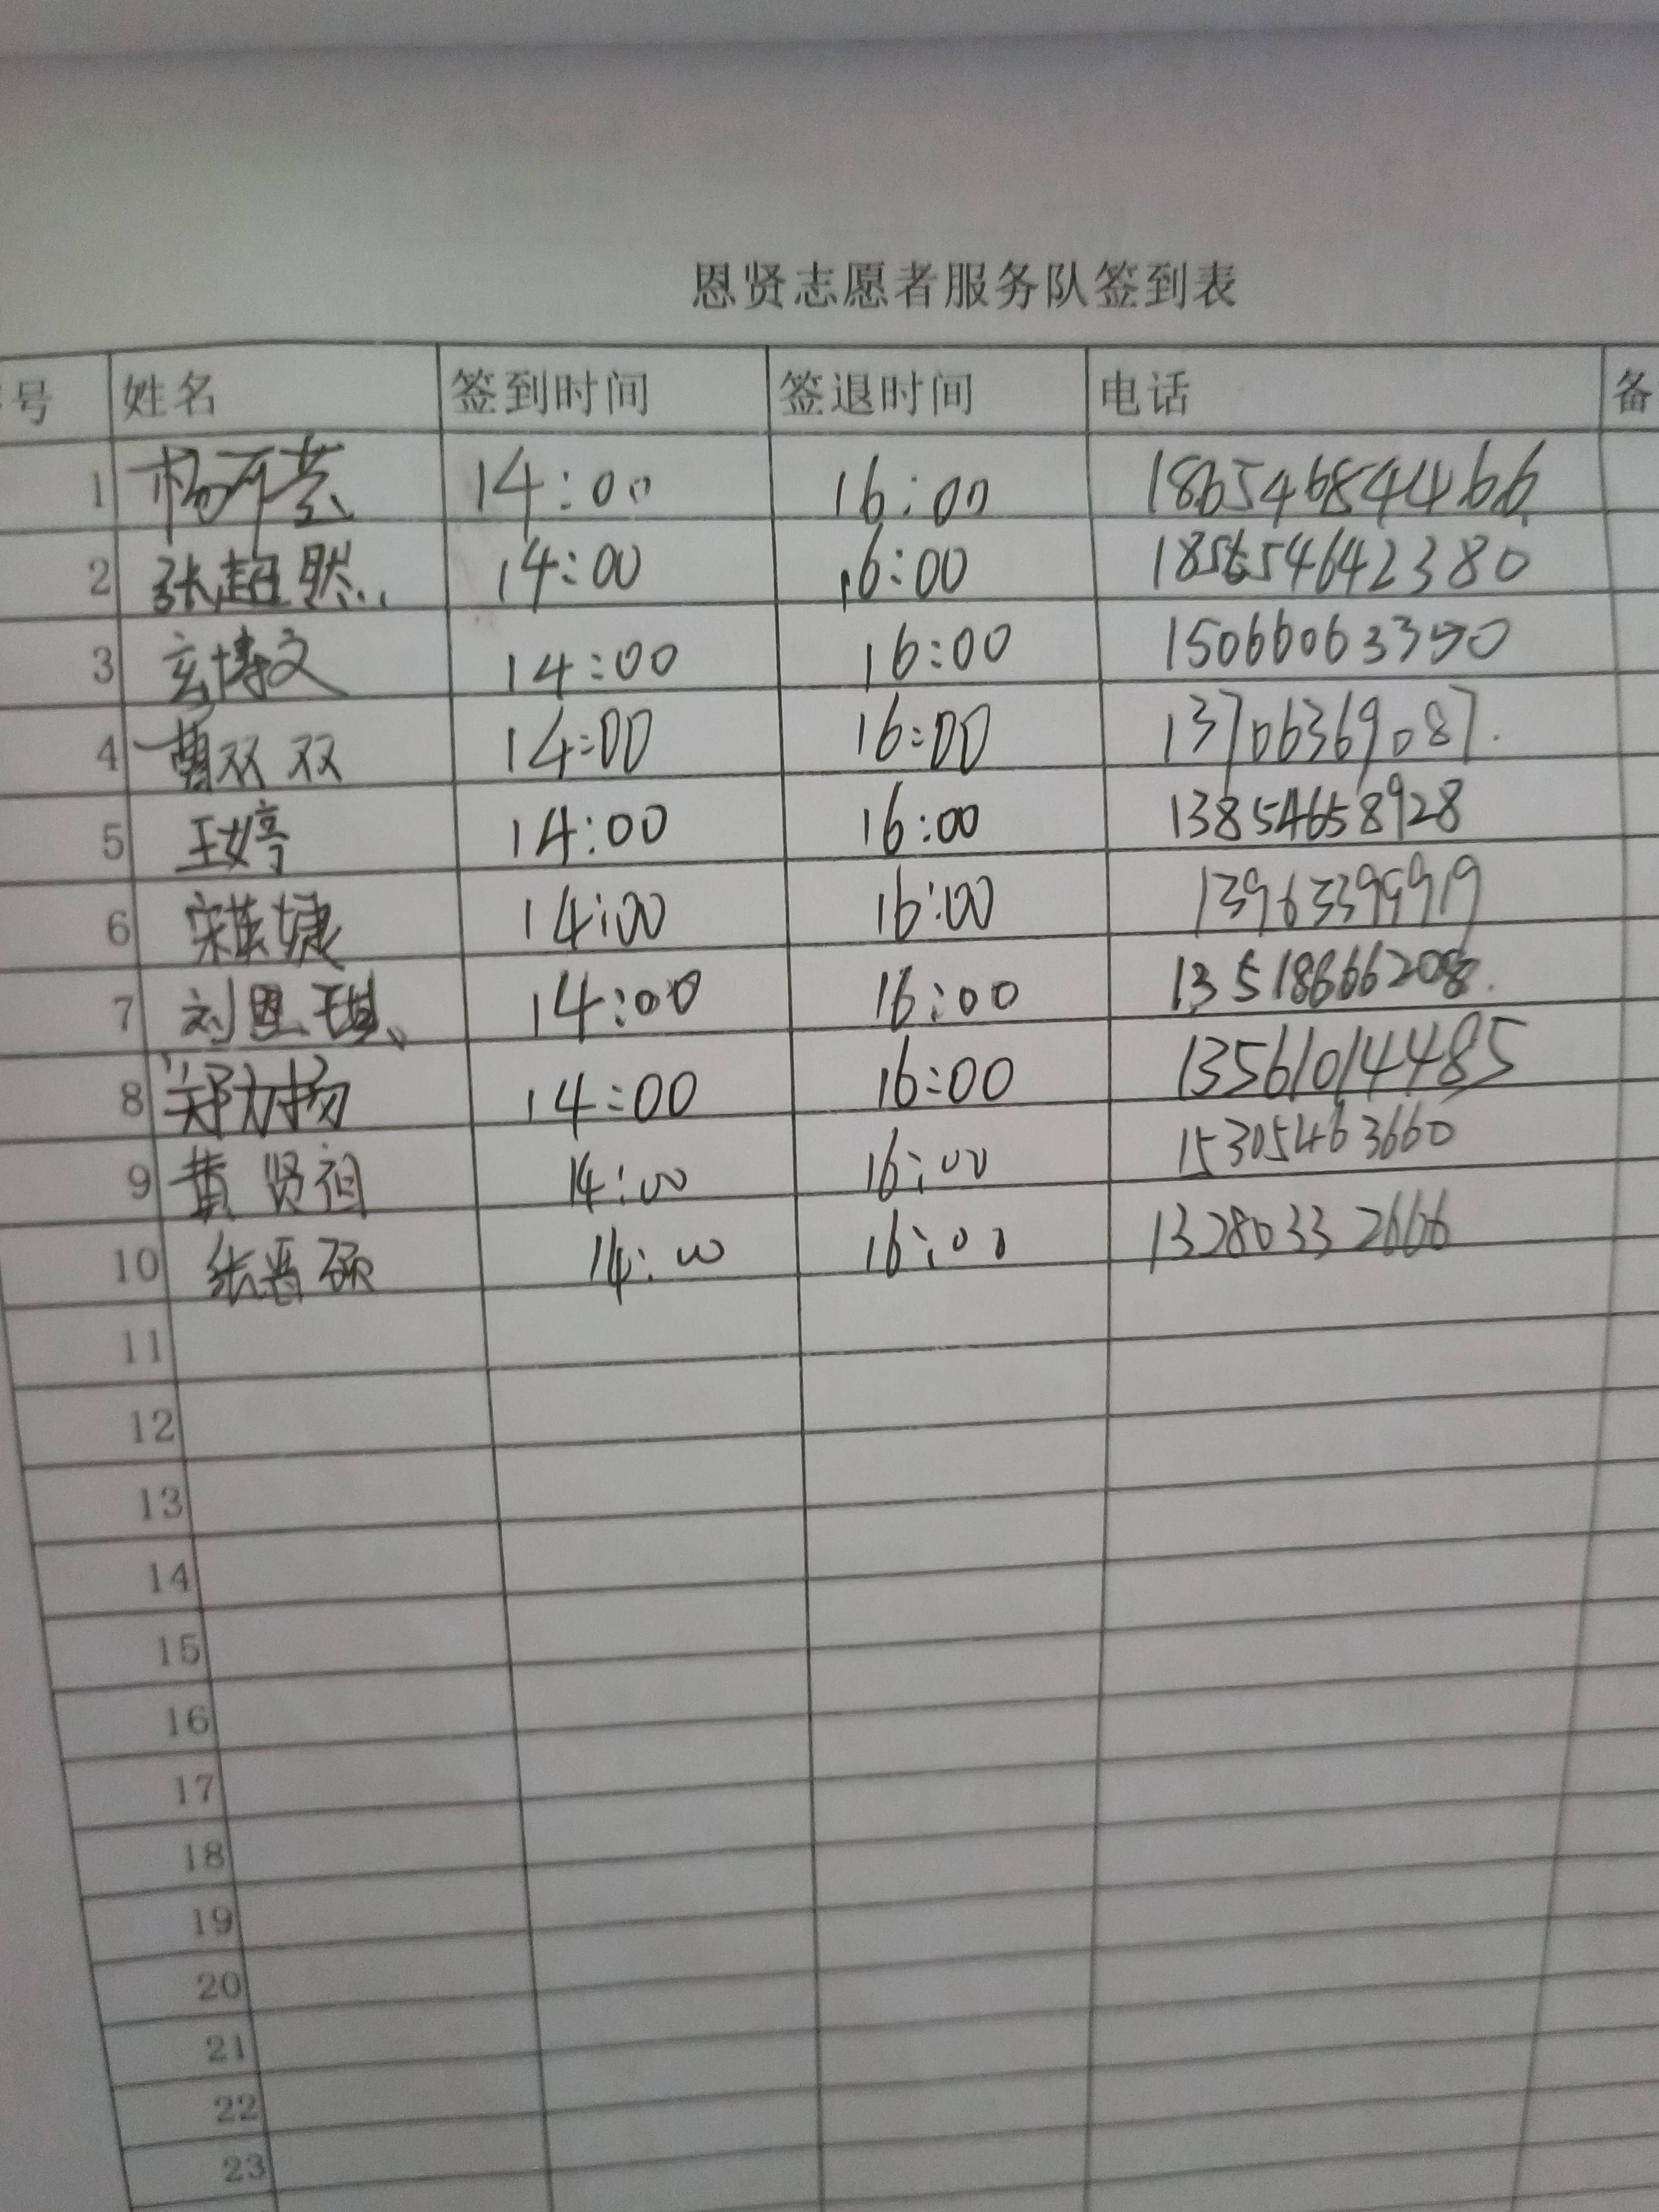 恩贤志愿者服务队签到表
号 姓名 签到时间 签退时间 电话 备
1 14:00 16:00
2 张超然 14:00 16:00
3 玄博文 14:00 16:00
4 曹双双 14:00 16:00 13706369087.
5 王婷 14:00 16:00 13854658928
6 14:00 16:00 13963399919
7 刘恩琪 14:00 16:00
8 郑力扬 14:00 16:00 13561014485
9 黄贤祖 14:00 16:00 15305463660
10 张晋硕 14:00 16:00 13280332606
11
12
13
14
15
16
17
18
19
20
21
22
23